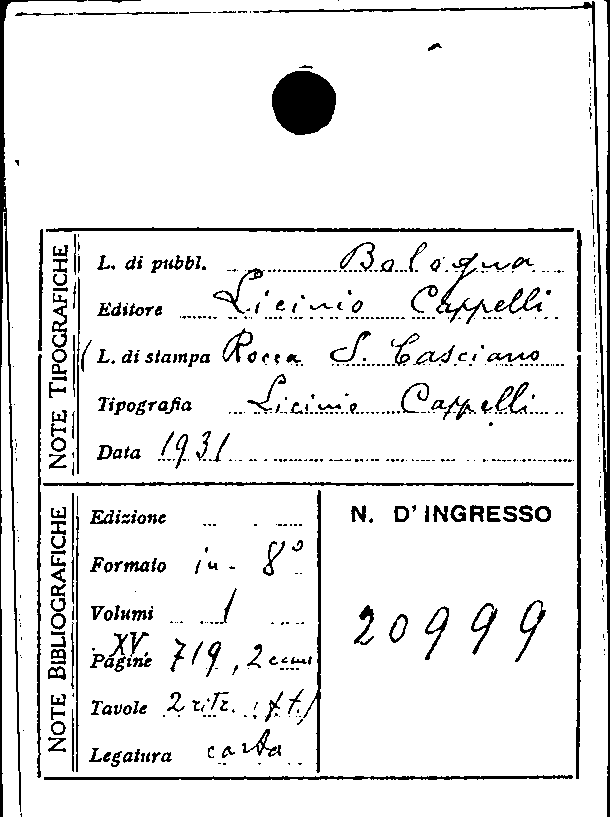 NOTE TIPOGRAFICHE
L. di pubbl. Bologna
Editore Licinio Cappelli
L. di stampa Rocca S. Casciano
Tipografia Licinio Cappelli
Data 1931
NOTE BIBLIOGRAFICHE
Edizione
Formato in-8°
Volumi 1
Pagine XV, 719, 2
Tavole 2 ritr. f.t.
Legatura carta
N. D'INGRESSO
20999